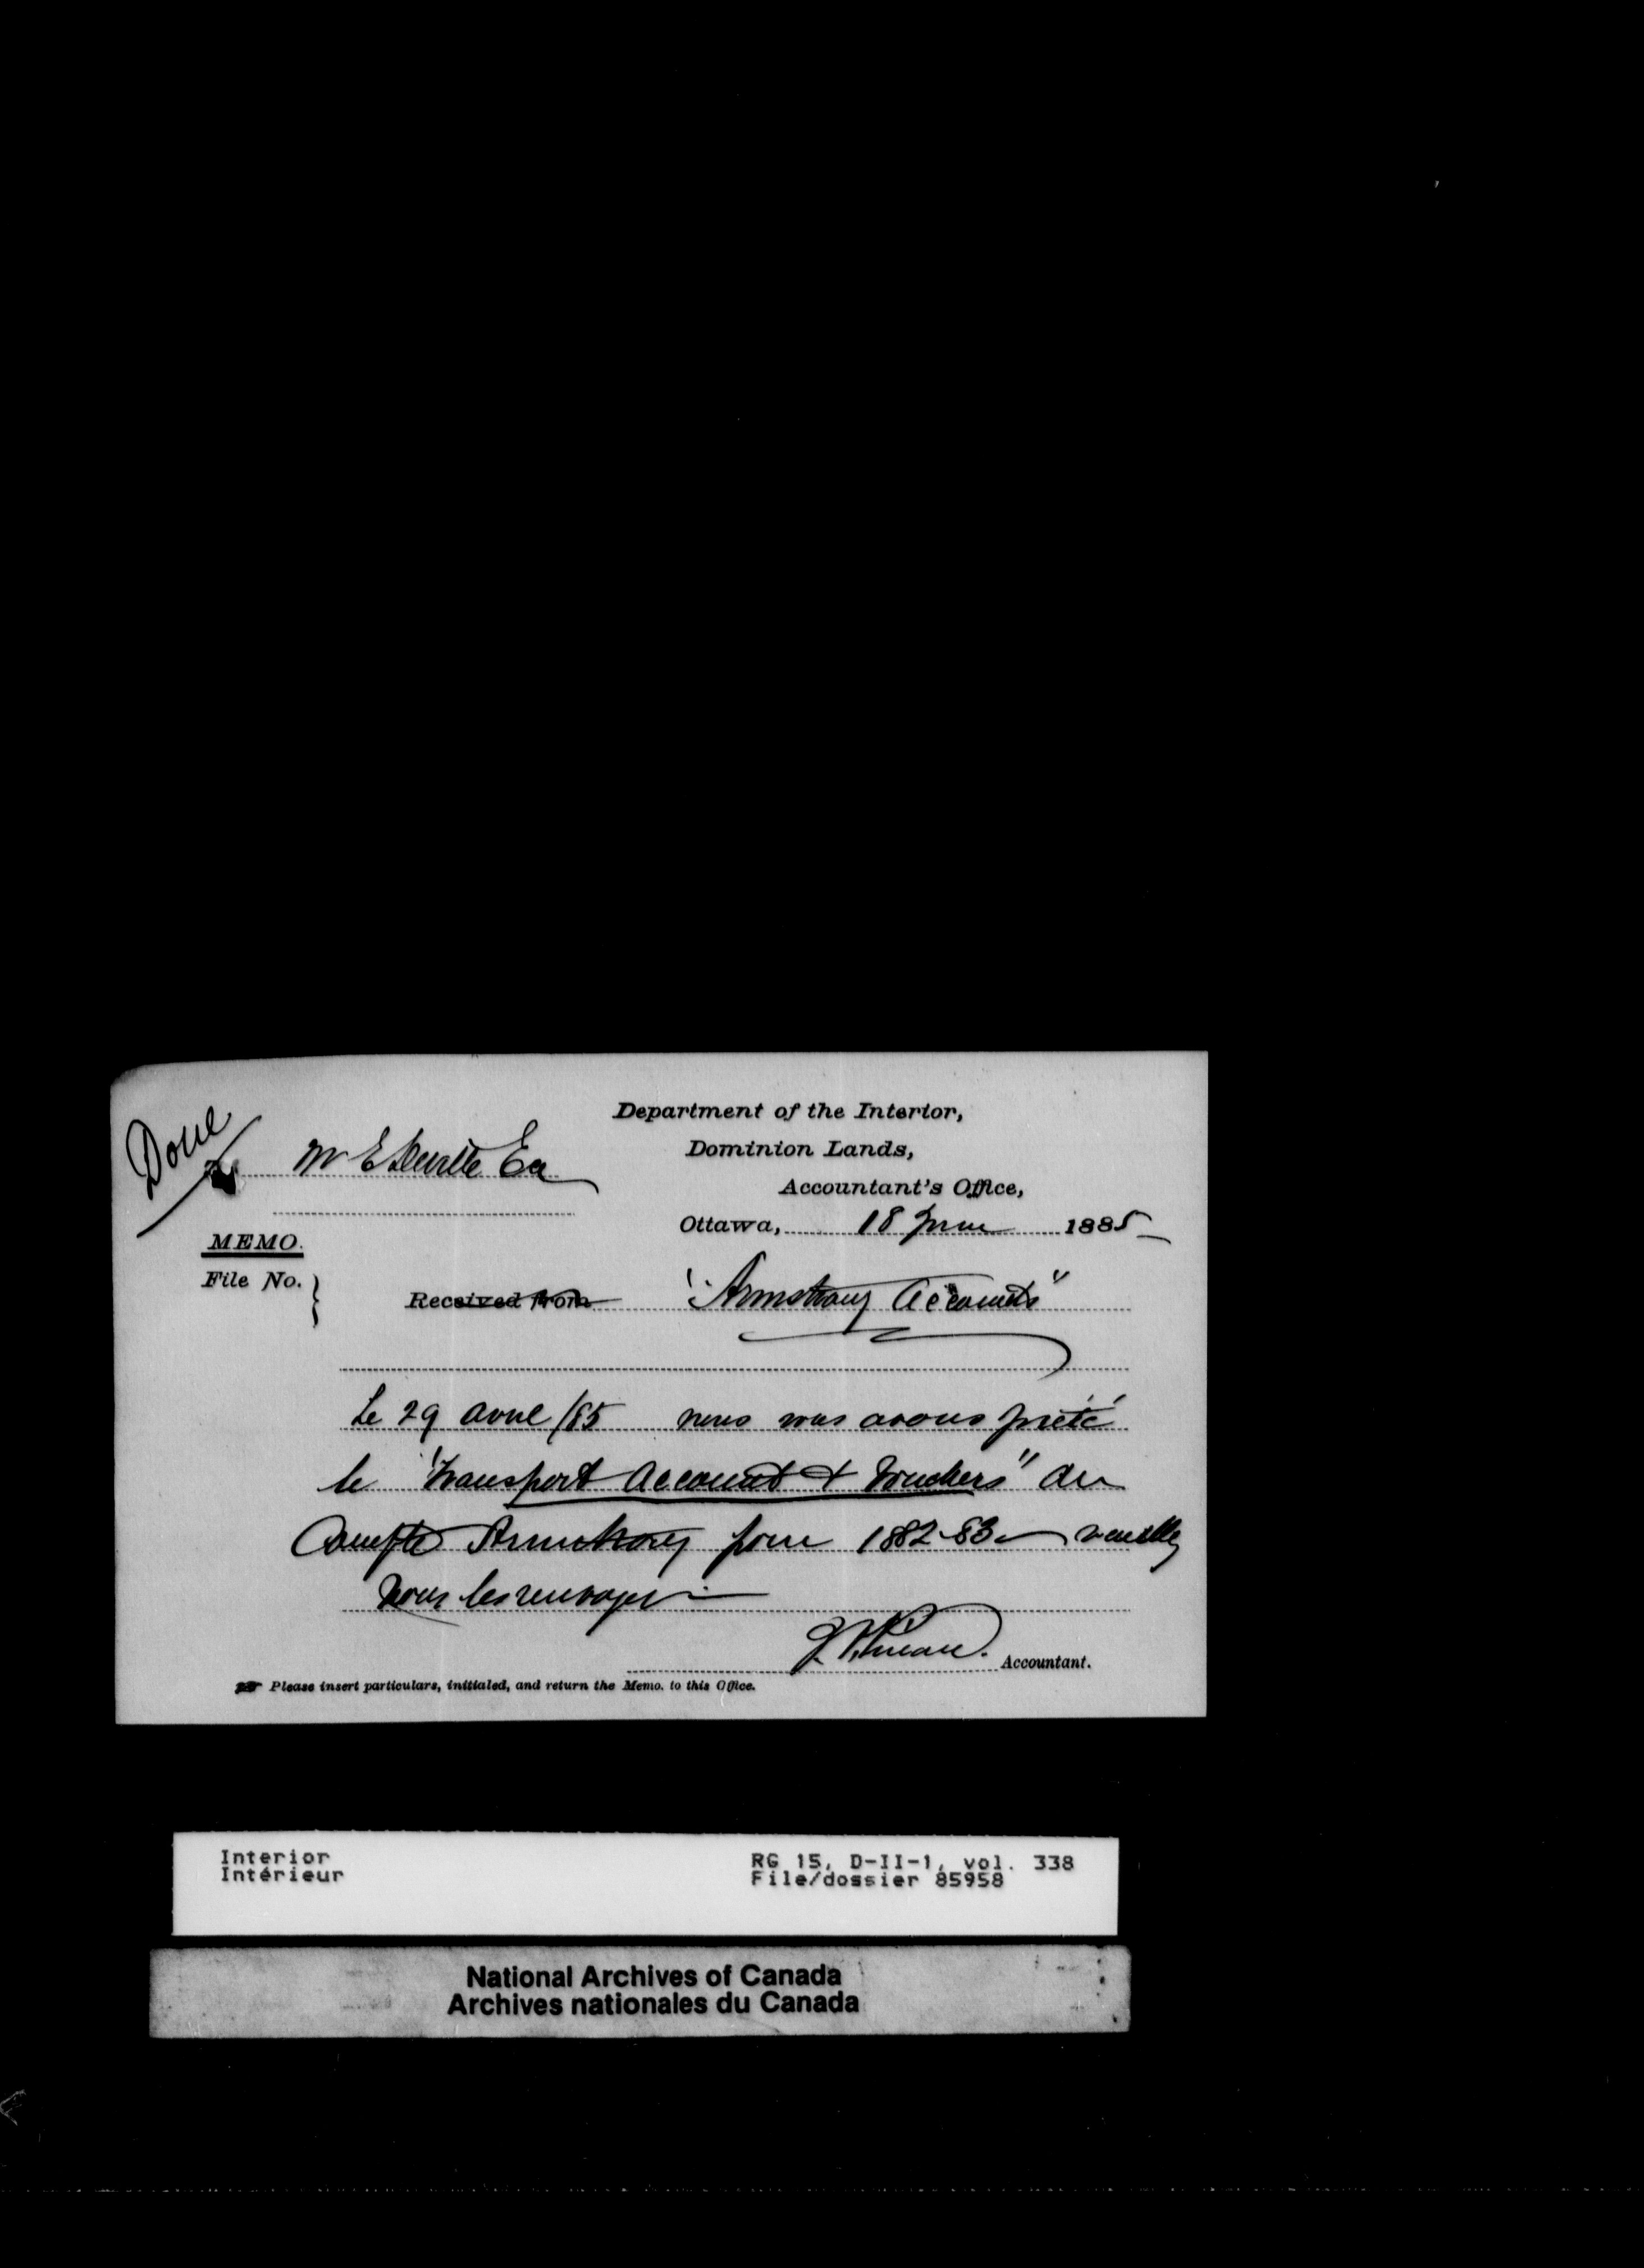 Done
Mr E Deville Es
Department of the Interior,
Dominion Lands,
Accountant's Office,
Ottawa, 18 June 1885
MEMO.
File No.
Received from "Armstrong Accounts"
Le 29 avril /85 nous vous avons prêté
le "Transport Account & Vouchers" du
Compte Armstrong pour 1882-83 veuillez
nous les renvoyer
Accountant.
Please insert particulars, initialed, and return the Memo. to this Office.
Interior
Intérieur
RG 15, D-II-1, vol. 338
File/dossier 85958
National Archives of Canada
Archives nationales du Canada